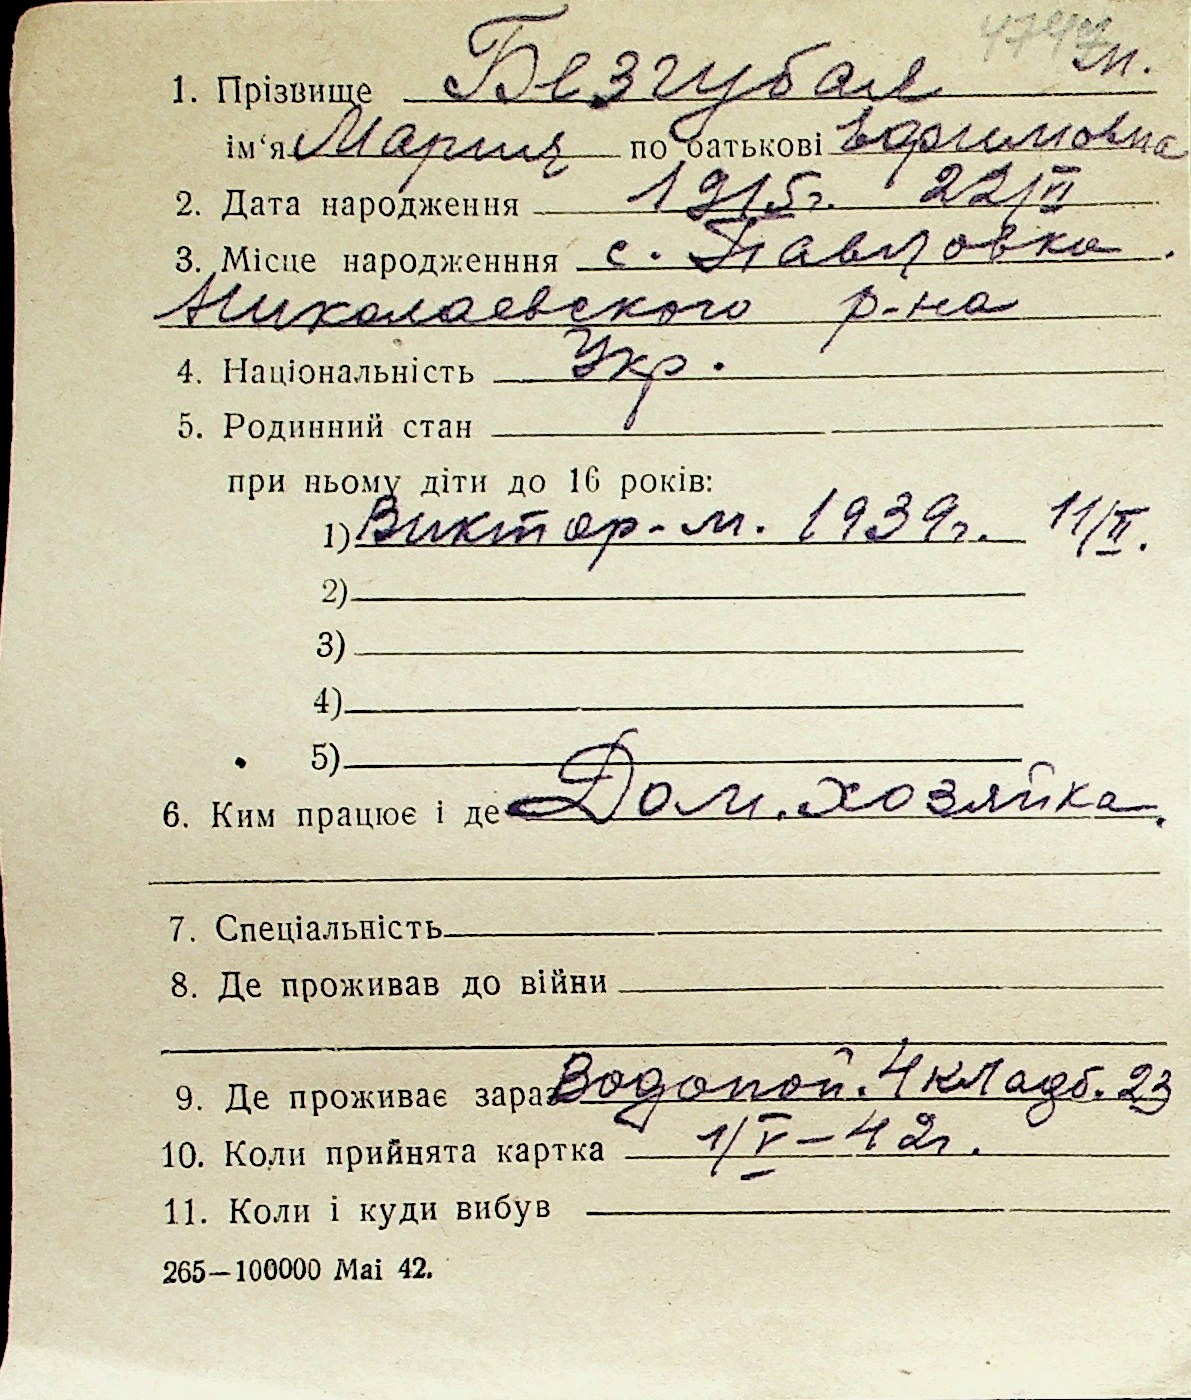 1. Прізвище Безгубая м.
ім'я Мария по батькові Ефимовна
2. Дата народження 1915г. 22/II
3. Місце народженння с. Павловка.
Николаевского р-на
4. Національність Укр.
5. Родинний стан
при ньому діти до 16 років:
1) Виктор-м. 1939г. 11/II.
2)
3)
4)
5)
6. Ким працює і де Дом. хозяйка.
7. Спеціальність
8. Де проживав до війни
9. Де проживає зараз Водопой. 4 кладб. 23
10. Коли прийнята картка 1/V – 42г.
11. Коли і куди вибув
265—100000 Mai 42.